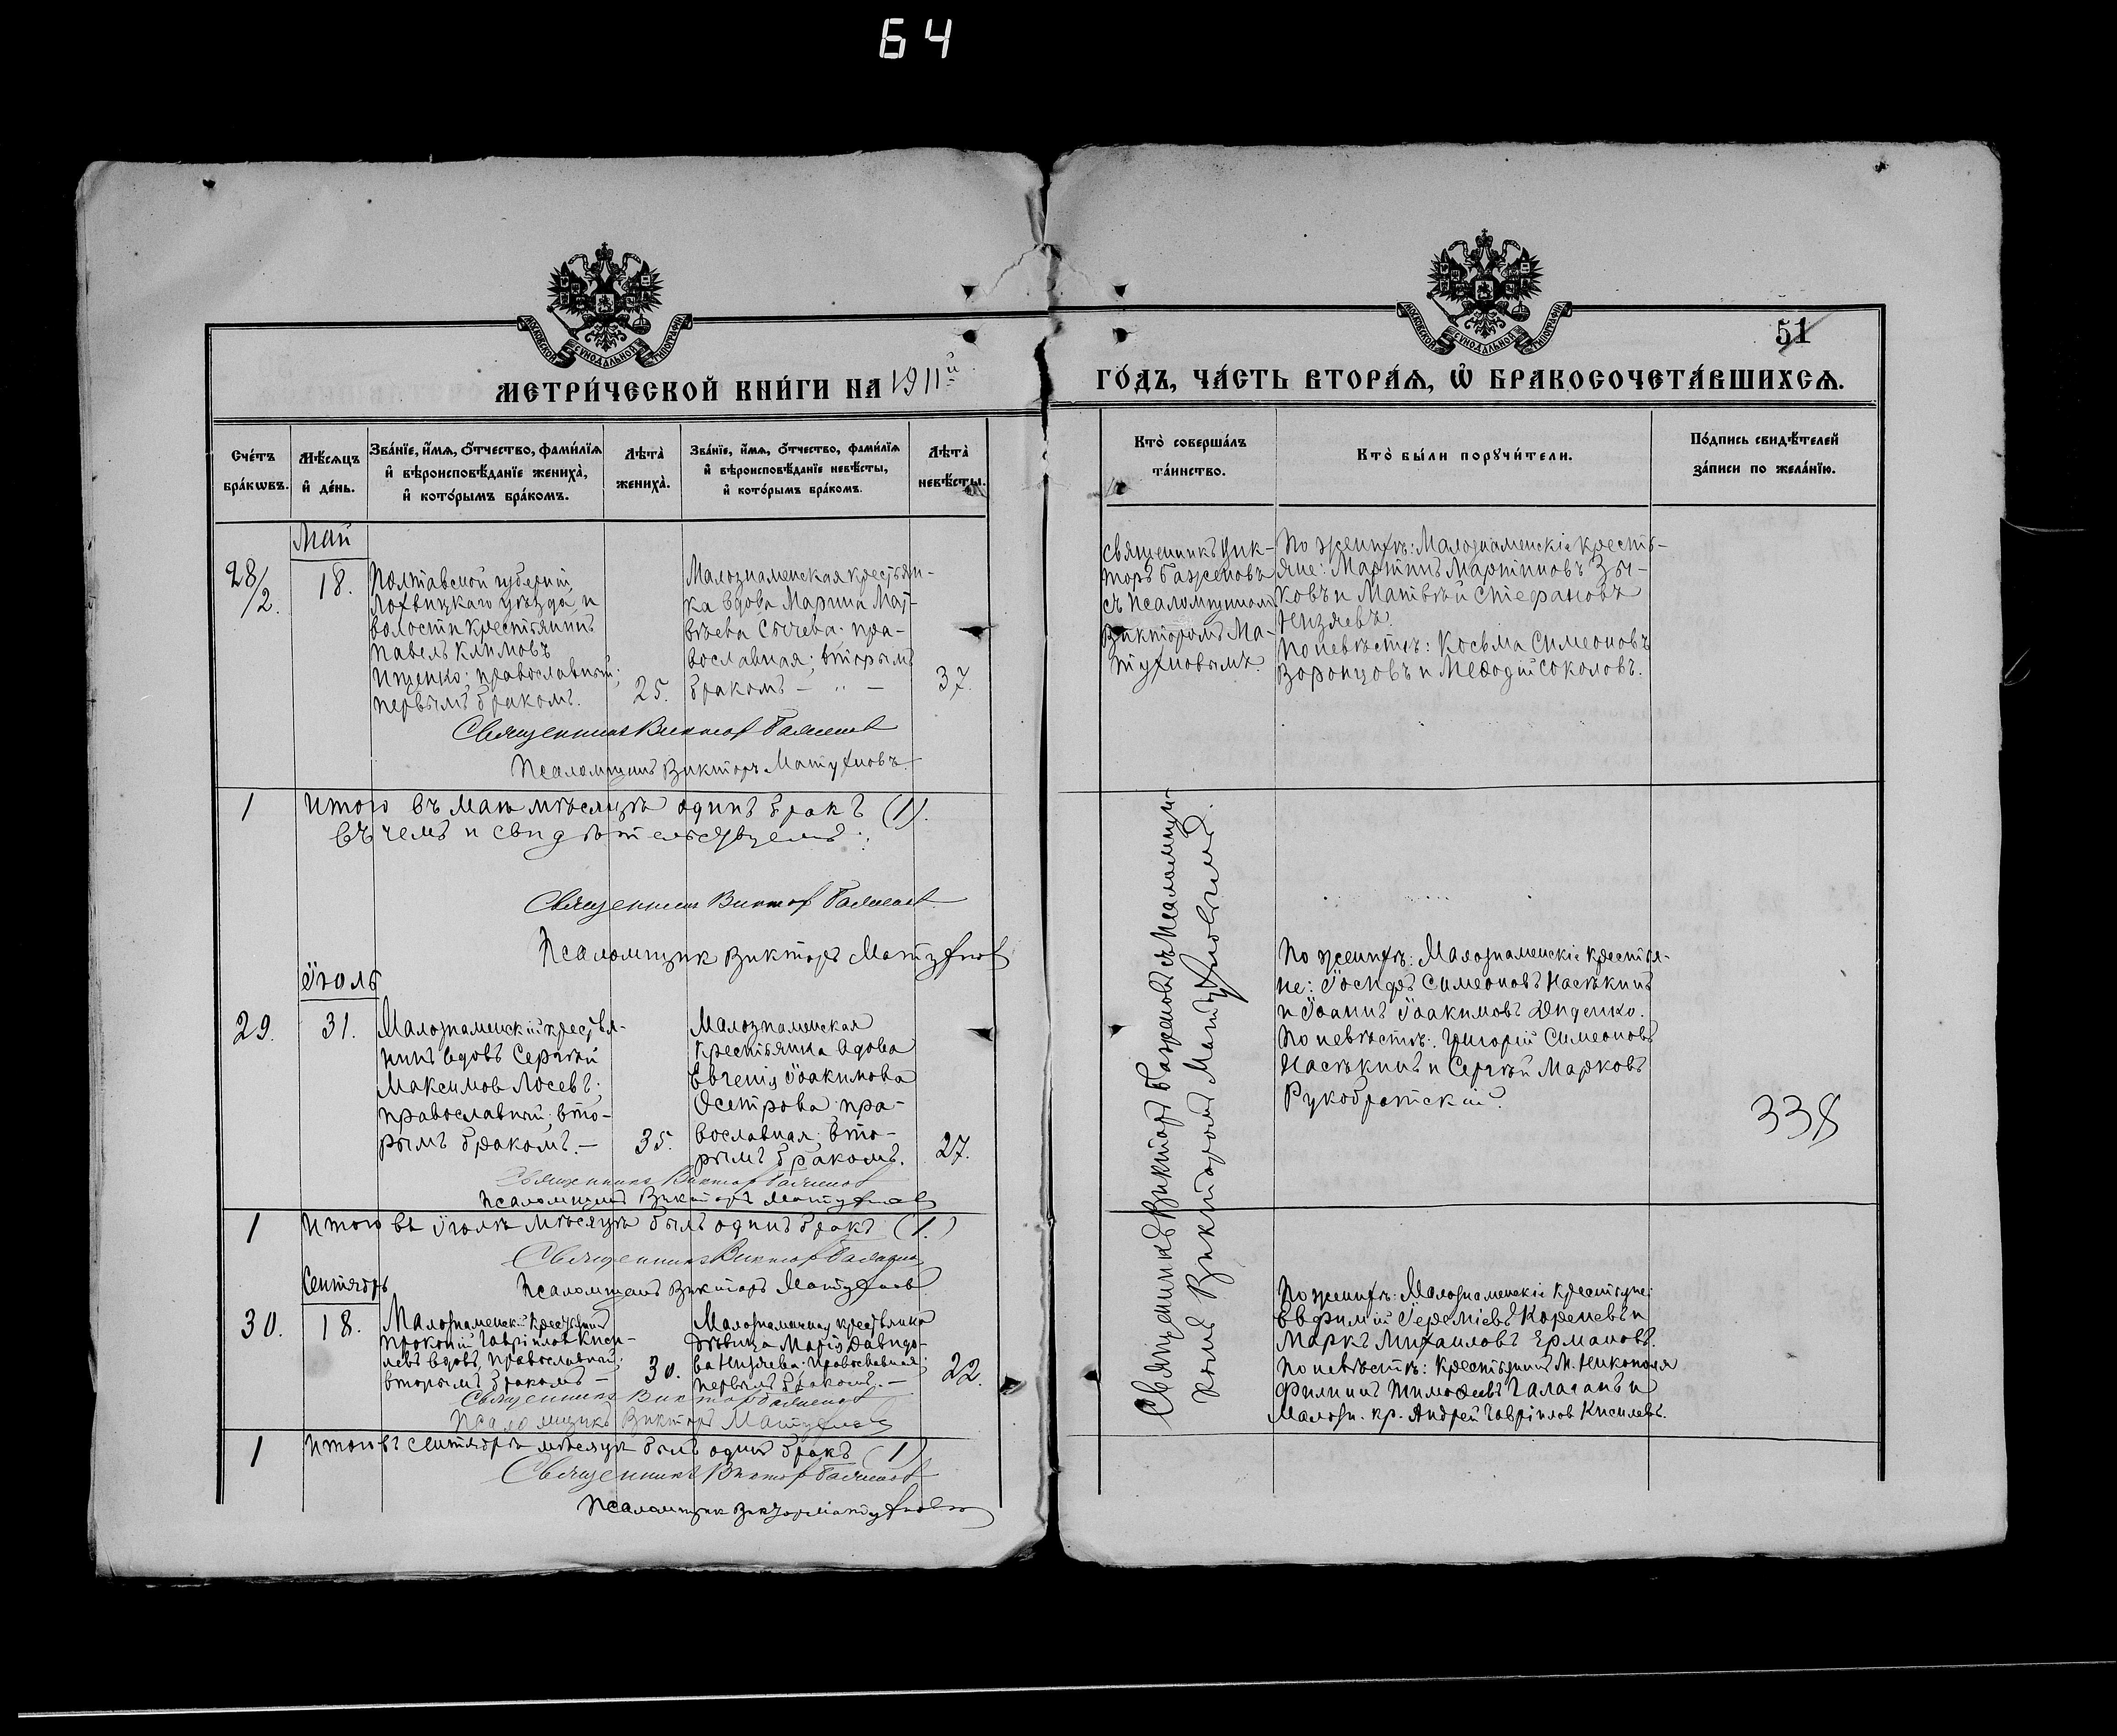 64
51
МЕТРИ́ЧЕСКОЙ КНИ́ГИ НА 1911й
ГО́ДЪ, ЧА́СТЬ ВТОРА́Ѧ, Ѡ҆ БРАКОСОЧЕТА́ВШИХСѦ.
МОСКОВСКОЙ СѴНОДАЛЬНОЙ ТИПОГРАФІИ
МОСКОВСКОЙ СѴНОДАЛЬНОЙ ТИПОГРАФІИ
Сче́тъ
бра́кѡвъ.
Мѣ́сѧцъ
и҆ де́нь.
Зва́нїе, и҆́мѧ, ѻ҆́тчество, фами́лїѧ
и҆ вѣроисповѣ́данїе жениха̀,
и҆ кото́рымъ бра́комъ.
Лѣ́та̀
жениха̀.
Зва́нїе, и҆́мѧ, ѻ҆́тчество, фами́лїѧ
и҆ вѣроисповѣ́данїе невѣ́сты,
и҆ кото́рымъ бра́комъ.
Лѣ́та̀
невѣ́сты.
Кто̀ соверша́лъ
та́инство.
Кто̀ бы́ли порꙋчи́тели.
По́дпись свидѣ́телей
за́писи по жела́нїю.
Май
28/2.
18.
Полтавской губерніи,
Лохвицкаго уѣзда, и
волости крестьянинъ
Павелъ Климовъ
Ищенко; православный;
первымъ бракомъ.
25.
Малознаменская крестьян-
ка вдова Марина Мат-
вѣева Сычева; пра-
вославная; вторымъ
бракомъ — „ —
37.
Священникъ Вик-
торъ Баженовъ
съ псаломщикомъ
Викторомъ Ма-
тухновымъ
По женихѣ: Малознаменскіе кресть-
яне: Мартинъ Мартиновъ Зы-
ковъ и Матвѣй Стефановъ
Низяевъ.
По невѣстѣ: Косьма Симеоновъ
Воронцовъ и Меѳодій Соколовъ.
Священникъ Викторъ Баженовъ
Псаломщикъ Викторъ Матухновъ.
1
Итого въ маѣ мѣсяцѣ одинъ бракъ (1).
въ чемъ и свидѣтельствуемъ:
Священникъ Викторъ Баженовъ
Псаломщик Викторъ Матухнов
Іюль
29.
31.
Малознаменскій крестья-
нинъ вдовъ Сергѣй
Максимов Лосевъ;
православный; вто-
рымъ бракомъ. —
35.
Малознаменская
крестьянка вдова
Евгенія Іоакимова
Осетрова; пра-
вославная; вто-
рымъ бракомъ.
27.
Священникъ Викторъ Баженовъ съ псаломщи-
комъ Викторомъ Матухновымъ.
По женихѣ: Малознаменскіе крестья-
не: Іосифъ Симеоновъ Насѣкинъ
и Іоаннъ Іоакимовъ Диденко.
По невѣстѣ: Григорій Симеоновъ
Насѣкинъ и Сергѣй Марковъ
Рукобратскій.
338
Священникъ Викторъ Баженов
Псаломщикъ Викторъ Матухнов
1
Итого въ Іюлѣ мѣсяцѣ былъ одинъ бракъ (1.)
Священникъ Викторъ Баженов
Псаломщикъ Викторъ Матухнов
Сентябрь
30.
18.
Малознаменскій крестьянинъ
Прокопій Гавріиловъ Кисе-
левъ вдовъ, православный;
вторымъ бракомъ —
30.
Малознаменская крестьянка
дѣвица Марія Давидо-
ва Низяева; православная;
первымъ бракомъ. —
22.
По женихѣ: Малознаменскіе крестьяне:
Евфимій Іереміевъ Кореневъ и
Маркъ Михаиловъ Ермаковъ.
По невѣстѣ: крестьянинъ М. Никополя
Филиппъ Тимоѳеевъ Галаганъ и
Малозн. кр. Андрей Гавріилов Киселевъ.
Священникъ Викторъ Баженов
Псаломщикъ Викторъ Матухнов
1
Итого въ сентябрѣ мѣсяцѣ былъ одинъ бракъ (1)
Священникъ Викторъ Баженовъ
Псаломщик Викторъ Матухновъ